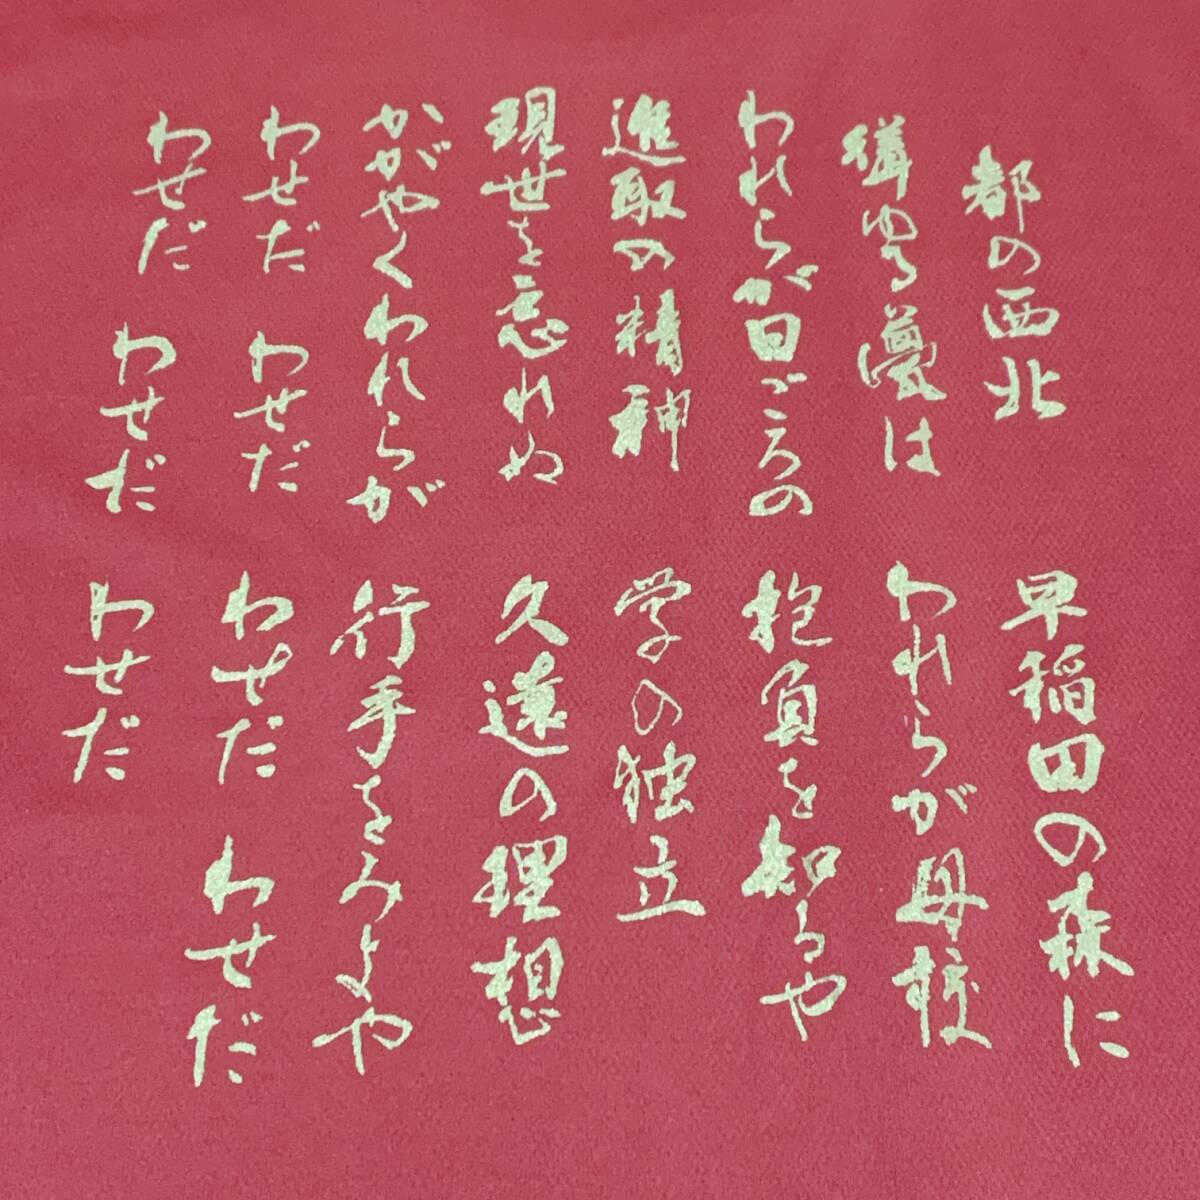 都の西北 早稲田の森に
聳ゆる甍は われらが母校
われらが日ごろの 抱負を知るや
進取の精神 学の独立
現世を忘れぬ 久遠の理想
かがやくわれらが 行手をみよや
わせだ わせだ わせだ わせだ
わせだ わせだ わせだ